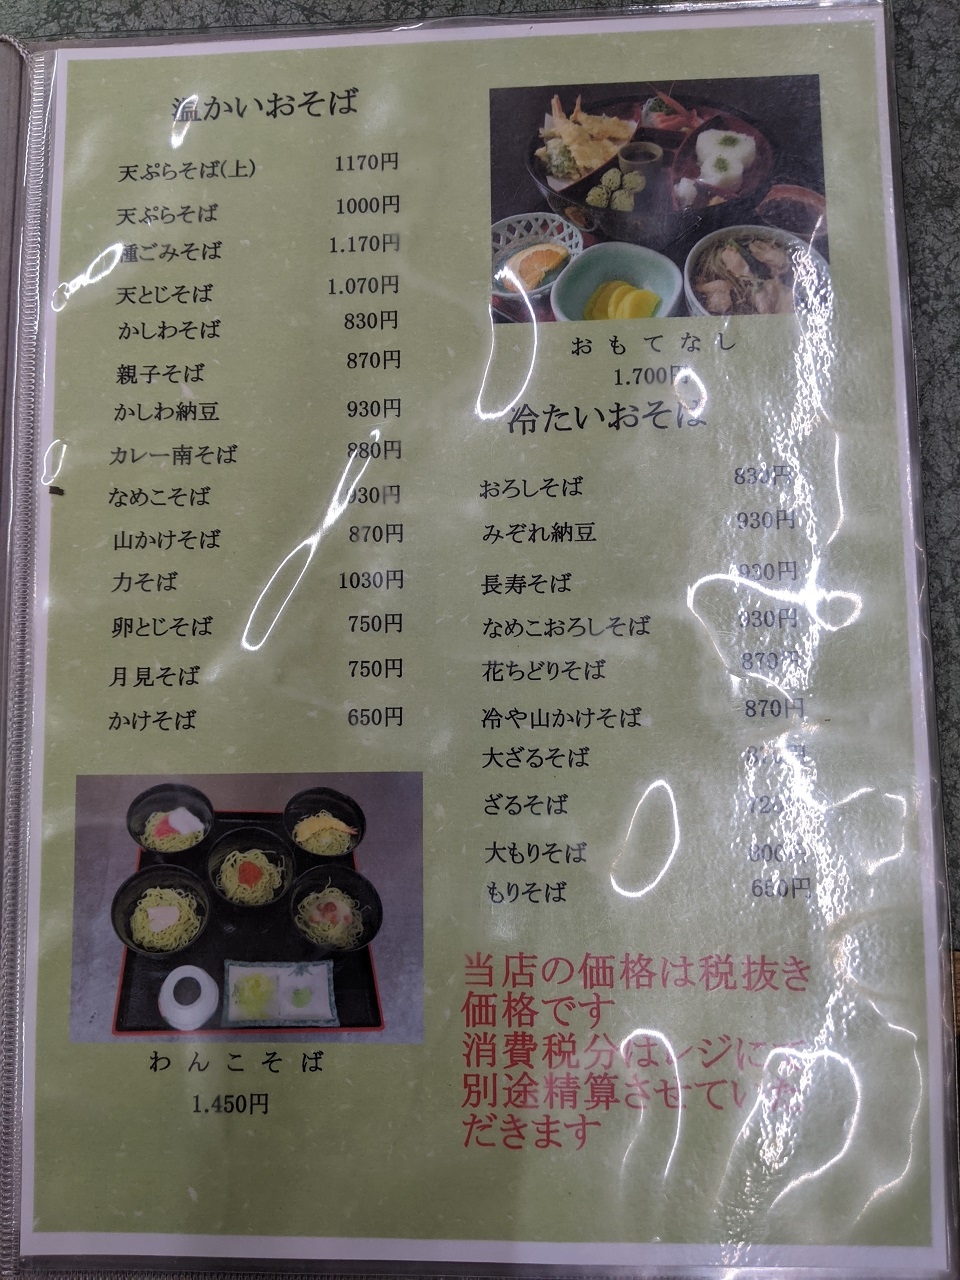 温かいおそば
天ぷらそば(上) 1170円
天ぷらそば 1000円
種ごみそば 1.170円
天とじそば 1.070円
かしわそば 830円
親子そば 870円
かしわ納豆 930円
カレー南そば 880円
なめこそば 930円
山かけそば 870円
力そば 1030円
卵とじそば 750円
月見そば 750円
かけそば 650円
わんこそば
1.450円
おもてなし
1.700円
冷たいおそば
おろしそば 830円
みぞれ納豆 930円
長寿そば 930円
なめこおろしそば 930円
花ちどりそば 870円
冷や山かけそば 870円
大ざるそば
ざるそば
大もりそば
もりそば 650円
当店の価格は税抜き
価格です
消費税分はレジにて
別途精算させていた
だきます